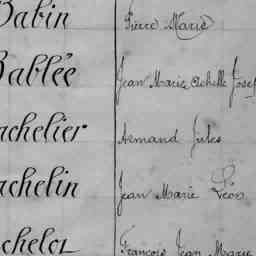 Babin Pierre Marie
Bablée Jean Marie Achille Josep
achelier Armand Jules
achelin Jean Marie Léon
chelot François Jean Marie